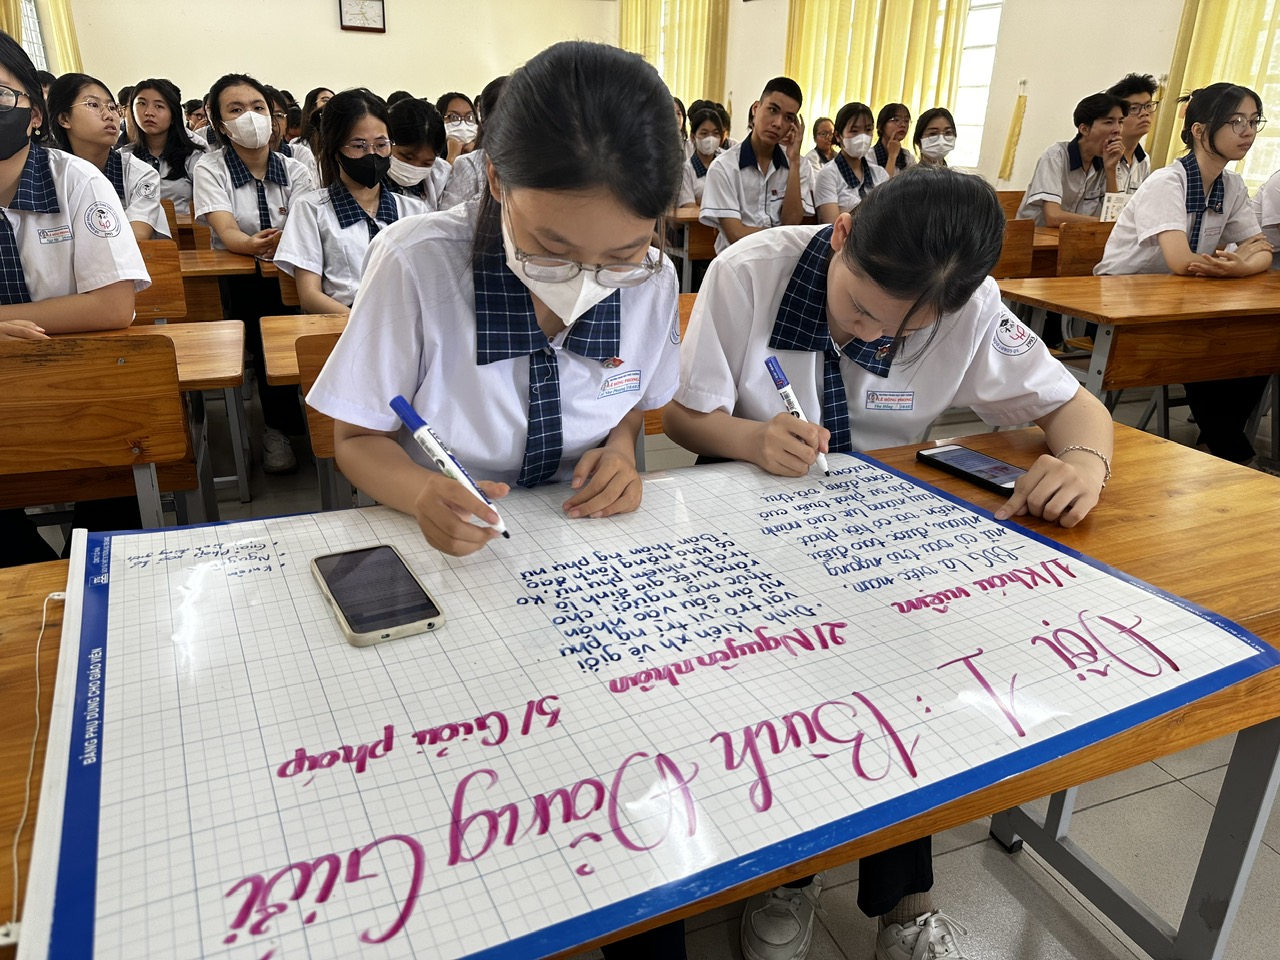 Đội 1: Bình Đẳng Giới
1/ Khái niệm
- BĐG là việc nam,
nữ có vai trò ngang
nhau, được tạo điều
kiện và cơ hội phát
huy năng lực của mình
cho sự phát triển của
cộng đồng và thụ
hưởng
2/ Nguyên nhân
• Định kiến xh về giới
vai trò, vị trí ng phụ
nữ ăn sâu vào nhận
thức mọi người cho
rằng việc gia đình là
trách nhiệm phụ nữ, ko
có khả năng lãnh đạo
• Bản thân ng phụ nữ
3/ Giải pháp
BẢNG PHỤ DÙNG CHO GIÁO VIÊN
LÊ HỒNG PHONG
LÊ HỒNG PHONG